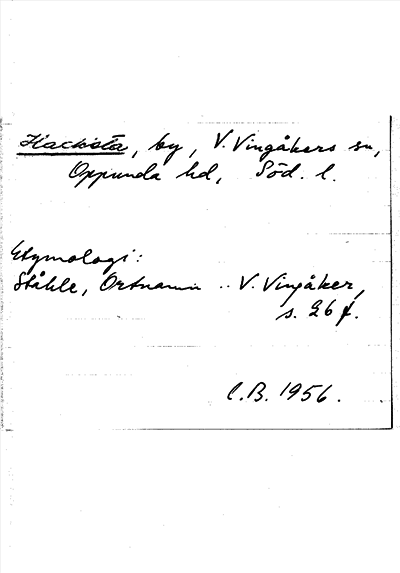 Hacksta, by, V. Vingåkers sn,
Oppunda hd, Söd. l.
Etymologi:
Ståhle, Ortnamn .. V. Vingåker,
s. 26 f.
C.B. 1956.